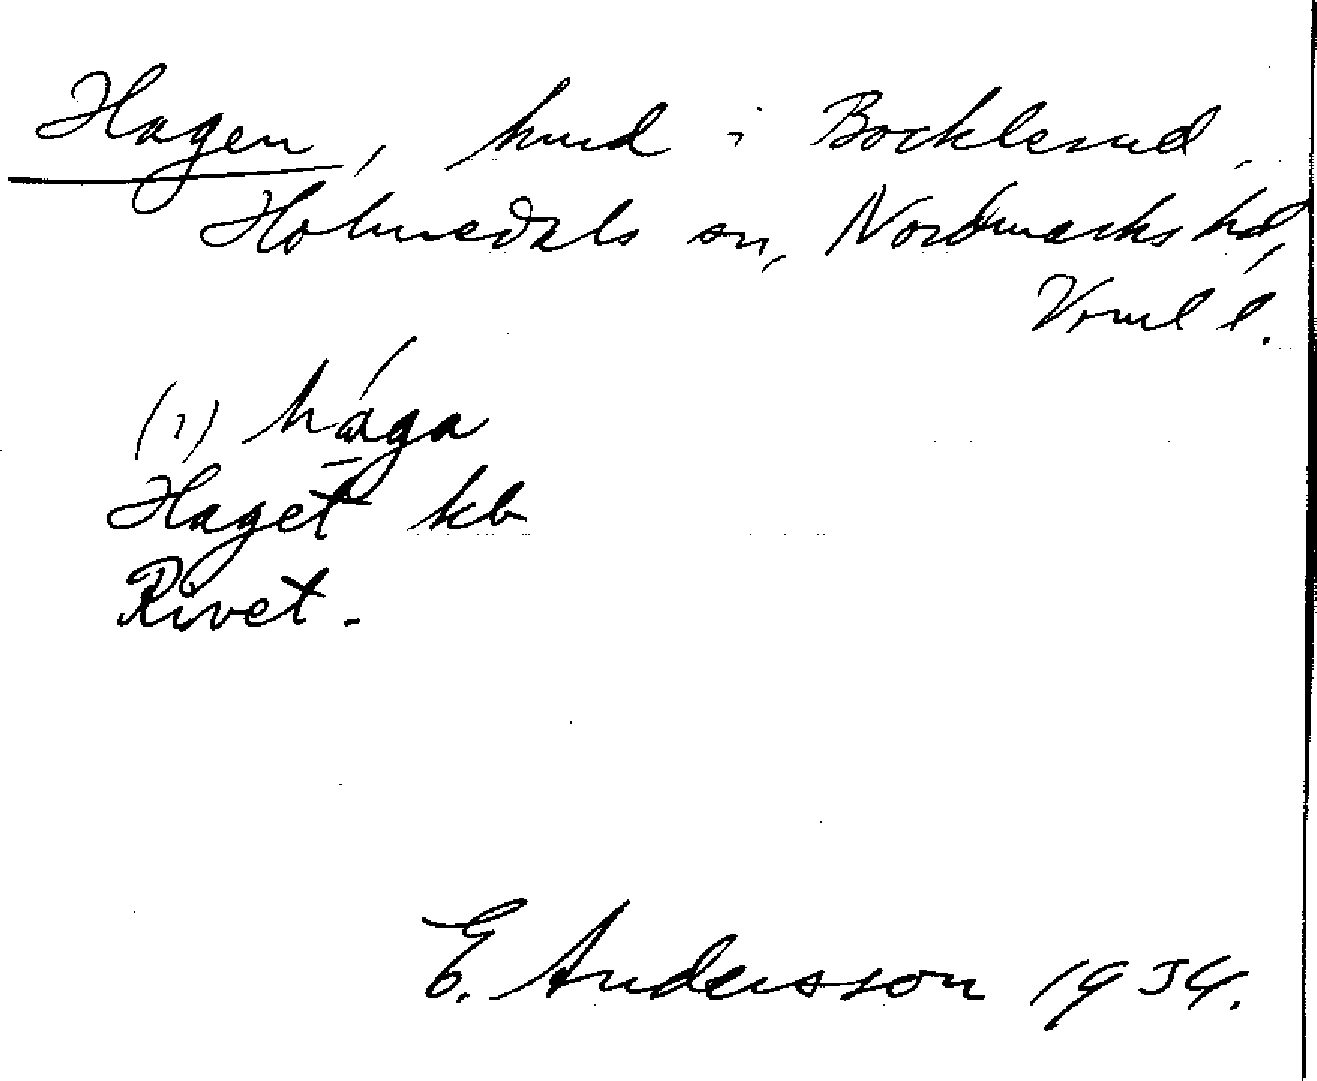 Hagen, hmd i Bocklerud,
Holmedals sn, Nordmarks hd,
Vrml l.
(i) hága
Haget kb
Rivet.
E. Andersson 1934.